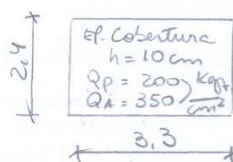 2,4
Ef. Cobertura
h = 10 cm
Qp = 200
QA = 350
Kgf/cm²
3,3